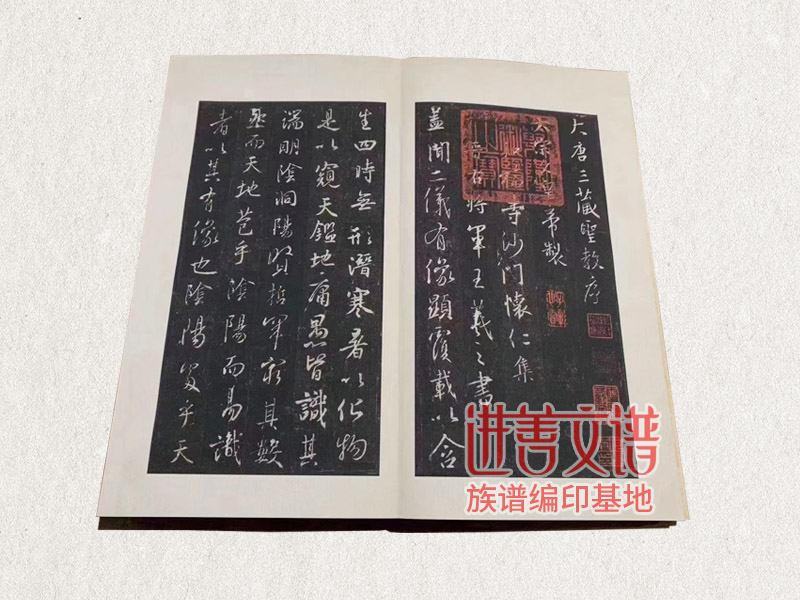 大唐三藏聖教序
太宗文皇帝製
寺沙門懷仁集
右將軍王羲之書
蓋聞二儀有像顯覆載以含
生四時無形潛寒暑以化物
是以窺天鑑地庸愚皆識其
端明陰洞陽賢哲罕窮其數
然而天地苞乎陰陽而易識
者以其有像也陰陽處乎天
进善文谱
族谱编印基地